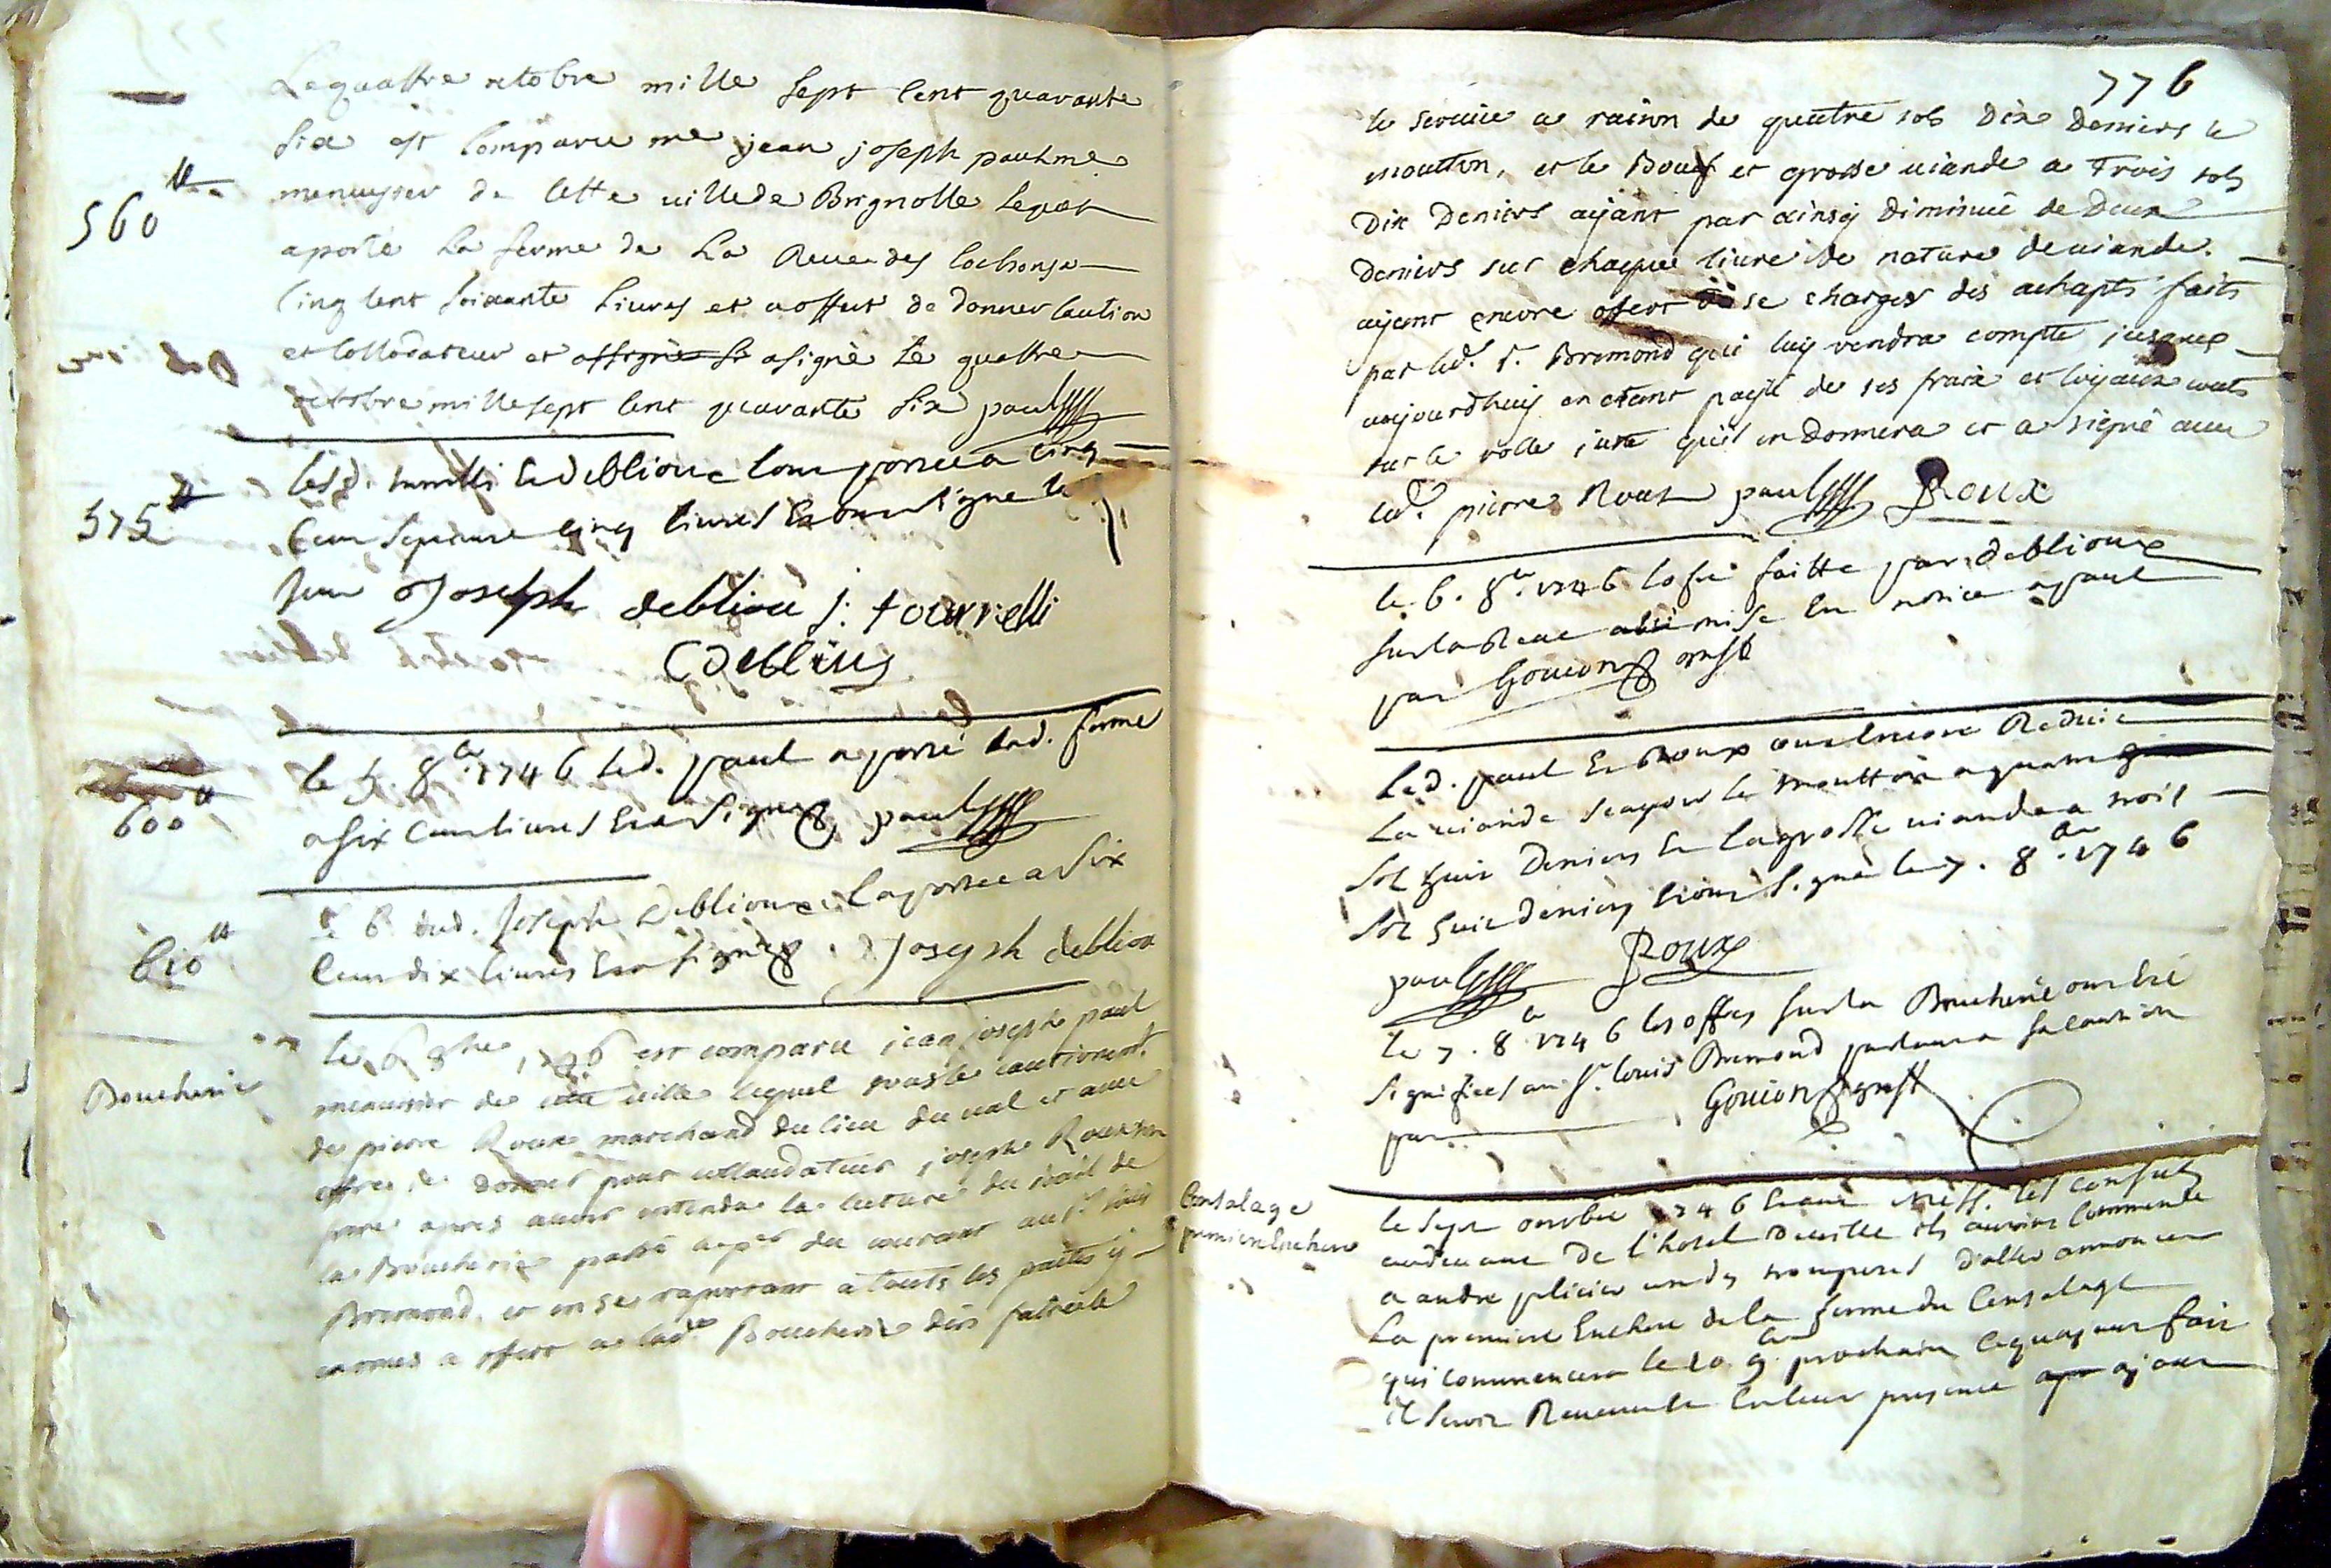 Le quattre octobre mille sept cent quarante
six est comparu me jean joseph paul me
menuysier de cette ville de Brignolle lequel
560 ₶
aporté la ferme de la Reue des cochons a
cinq cent soixante livres et a offert de donner caution
et collodateur et assigné se a signé le quattre
octobre mille sept cent quarante six paul
lesd. tourrelli et deblioux l'ont portée a cinq
575 ₶
cent septante cinq livres et ont signé
Joseph deblieu j. tourrelli
C deblieu
le 5. 8bre. 1746 led. paul a porté lad. ferme
600 ₶
a six cent livres et a signé paul
le 6 dud. Joseph deblioux l'a portée a six
610 ₶
cent dix livres et a signé. Joseph deblioux
Boucherie
le 6 8bre 1746 est comparu jean joseph paul
menuisier de cette ville lequel sous le cautionemt.
de pierre Roux marchand du lieu du val et avec
offre de donner pour collaudateur joseph Roux son
frere apres avoir entendu la lecture du bail de
la Boucherie passé le per du courant au sr louis
Bremond, et en se raportant a touts les pactes y
enoncés a offert a lad. Boucherie d'en faire le
776
le service a raison de quatre sols dix deniers le
moutton, et le Bouef et grosse viande a trois sols
dix deniers ayant par ainsy diminué de deux
deniers sur chaque livre de nature de viande.
ayant encore offert de se charger des achapts faits
par led. sr. Bremond qui luy rendra compte jusques
aujourdhuy en etant payé de ses fraix et loyaux couts
sur le rolle juste qu'il en donnera et a signé avec
led. pierre Roux paul Roux
le 6. 8bre. 1746 l'ofre faitte par deblioux
sur la Reue a été mise en notice a paul
par Goujon greff
Led. paul et Roux ont encore Reduit
la viande scavoir le moutton a quatre
sols huit deniers et la grosse viande a trois
sols huit deniers et ont signé le 7. 8bre. 1746
paul Roux
le 7. 8bre 1746 les offres sur la Boucherie ont été
signifiées au sr. louis Bremond parlant a sa
par Goujon greff
Censalage
premiere Enchere
le sept octobre 1746 Messrs. les consuls
de l'hotel de ville ils auroint commandé
a andre un des trompetes d'aller annoncer
La premiere Enchere de la ferme du Censalage
qui commencera le 10 9bre prochain lequel ayant fait
il seroit Revenu et en leur presence